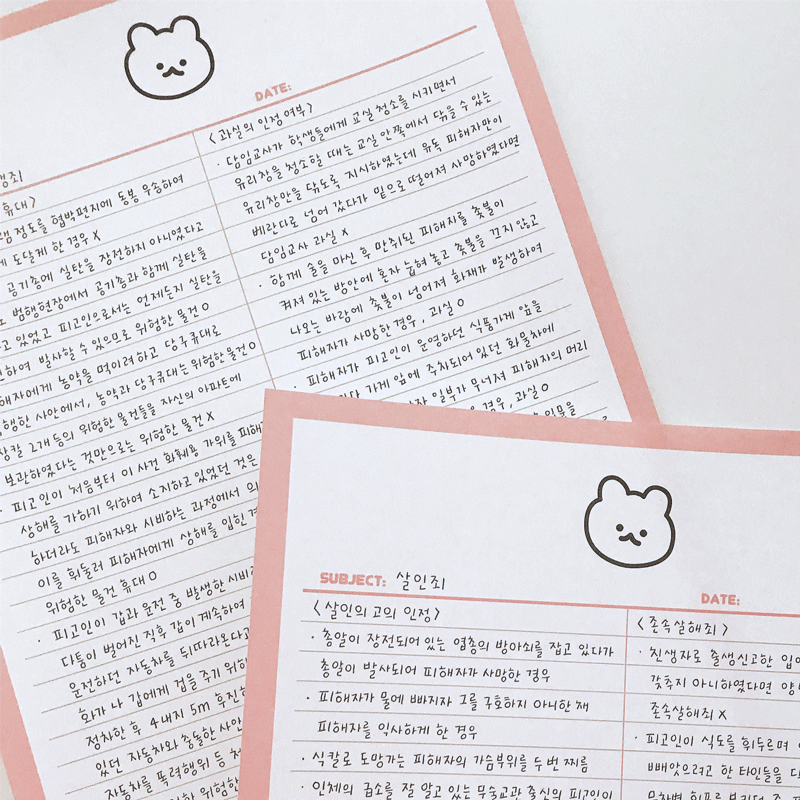 DATE:
행죄
휴대>
램 정도를 협박편지에 동봉 우송하여
게 도달케 한 경우 X
공기총에 실탄을 장전하지 아니였다고
도 범행현장에서 공기총과 함께 실탄을
고 있었고 피고인으로서는 언제든지 실탄을
전하여 발사할 수 있으므로 위험한 물건 O
해자에게 농약을 먹이려하고 당구큐대로
행한 사안에서, 농약과 당구큐대는 위험한물건O
2개 등의 위험한 물건들을 자신의 아파트에
보관하였다는 것만으로는 위험한 물건 X
· 피고인이 처음부터 이 사건 화훼용 가위를 피해
상해를 가하기 위하여 소지하고 있었던 것은
하더라도 피해자와 시비하는 과정에서 의
이를 휘둘러 피해자에게 상해를 입힌 경
위험한 물건 휴대 O
· 피고인이 갑과 운전 중 발생한 시비
다툼이 벌어진 직후 갑이 계속하여
운전하던 자동차를 뒤따라온다고
화가 나 갑에게 겁을 주기 위하
정차한 후 4내지 5m 후진하
있던 자동차와 충돌한 사안
자동차를 폭력행위 등 처
위험한
<과실의 인정여부>
· 담임교사가 학생들에게 교실 청소를 시키면서
유리창을 청소할 때는 교실 안쪽에서 닦을 수 있는
유리창만을 닦도록 지시하였는데 유독 피해자만이
베란다로 넘어 갔다가 밑으로 떨어져 사망하였다면
담임교사 과실 X
· 함께 술을 마신 후 만취된 피해자를 촛불이
켜져 있는 방안에 혼자 눕혀 놓고 촛불을 끄지 않고
나오는 바람에 촛불이 넘어져 화재가 발생하여
피해자가 사망한 경우, 과실 O
· 피해자가 피고인이 운영하던 식품가게 앞을
다 가게 앞에 주차되어 있던 화물차에
일부가 무너져 피해자의 머리
경우, 과실 O
인물을
SUBJECT: 살인죄
DATE:
<살인의 고의 인정>
· 총알이 장전되어 있는 엽총의 방아쇠를 잡고 있다가
총알이 발사되어 피해자가 사망한 경우
· 피해자가 물에 빠지자 그를 구호하지 아니한 채
피해자를 익사하게 한 경우
· 식칼로 도망가는 피해자의 가슴부위를 두번 찌름
· 인체의 급소를 잘 알고 있는 무술교관 출신의 피고인이
<존속살해죄>
· 친생자로 출생신고한 입
갖추지 아니하였다면 양
존속살해죄 X
· 피고인이 식도를 휘두르며
빼앗으려고 한 타인들을 다